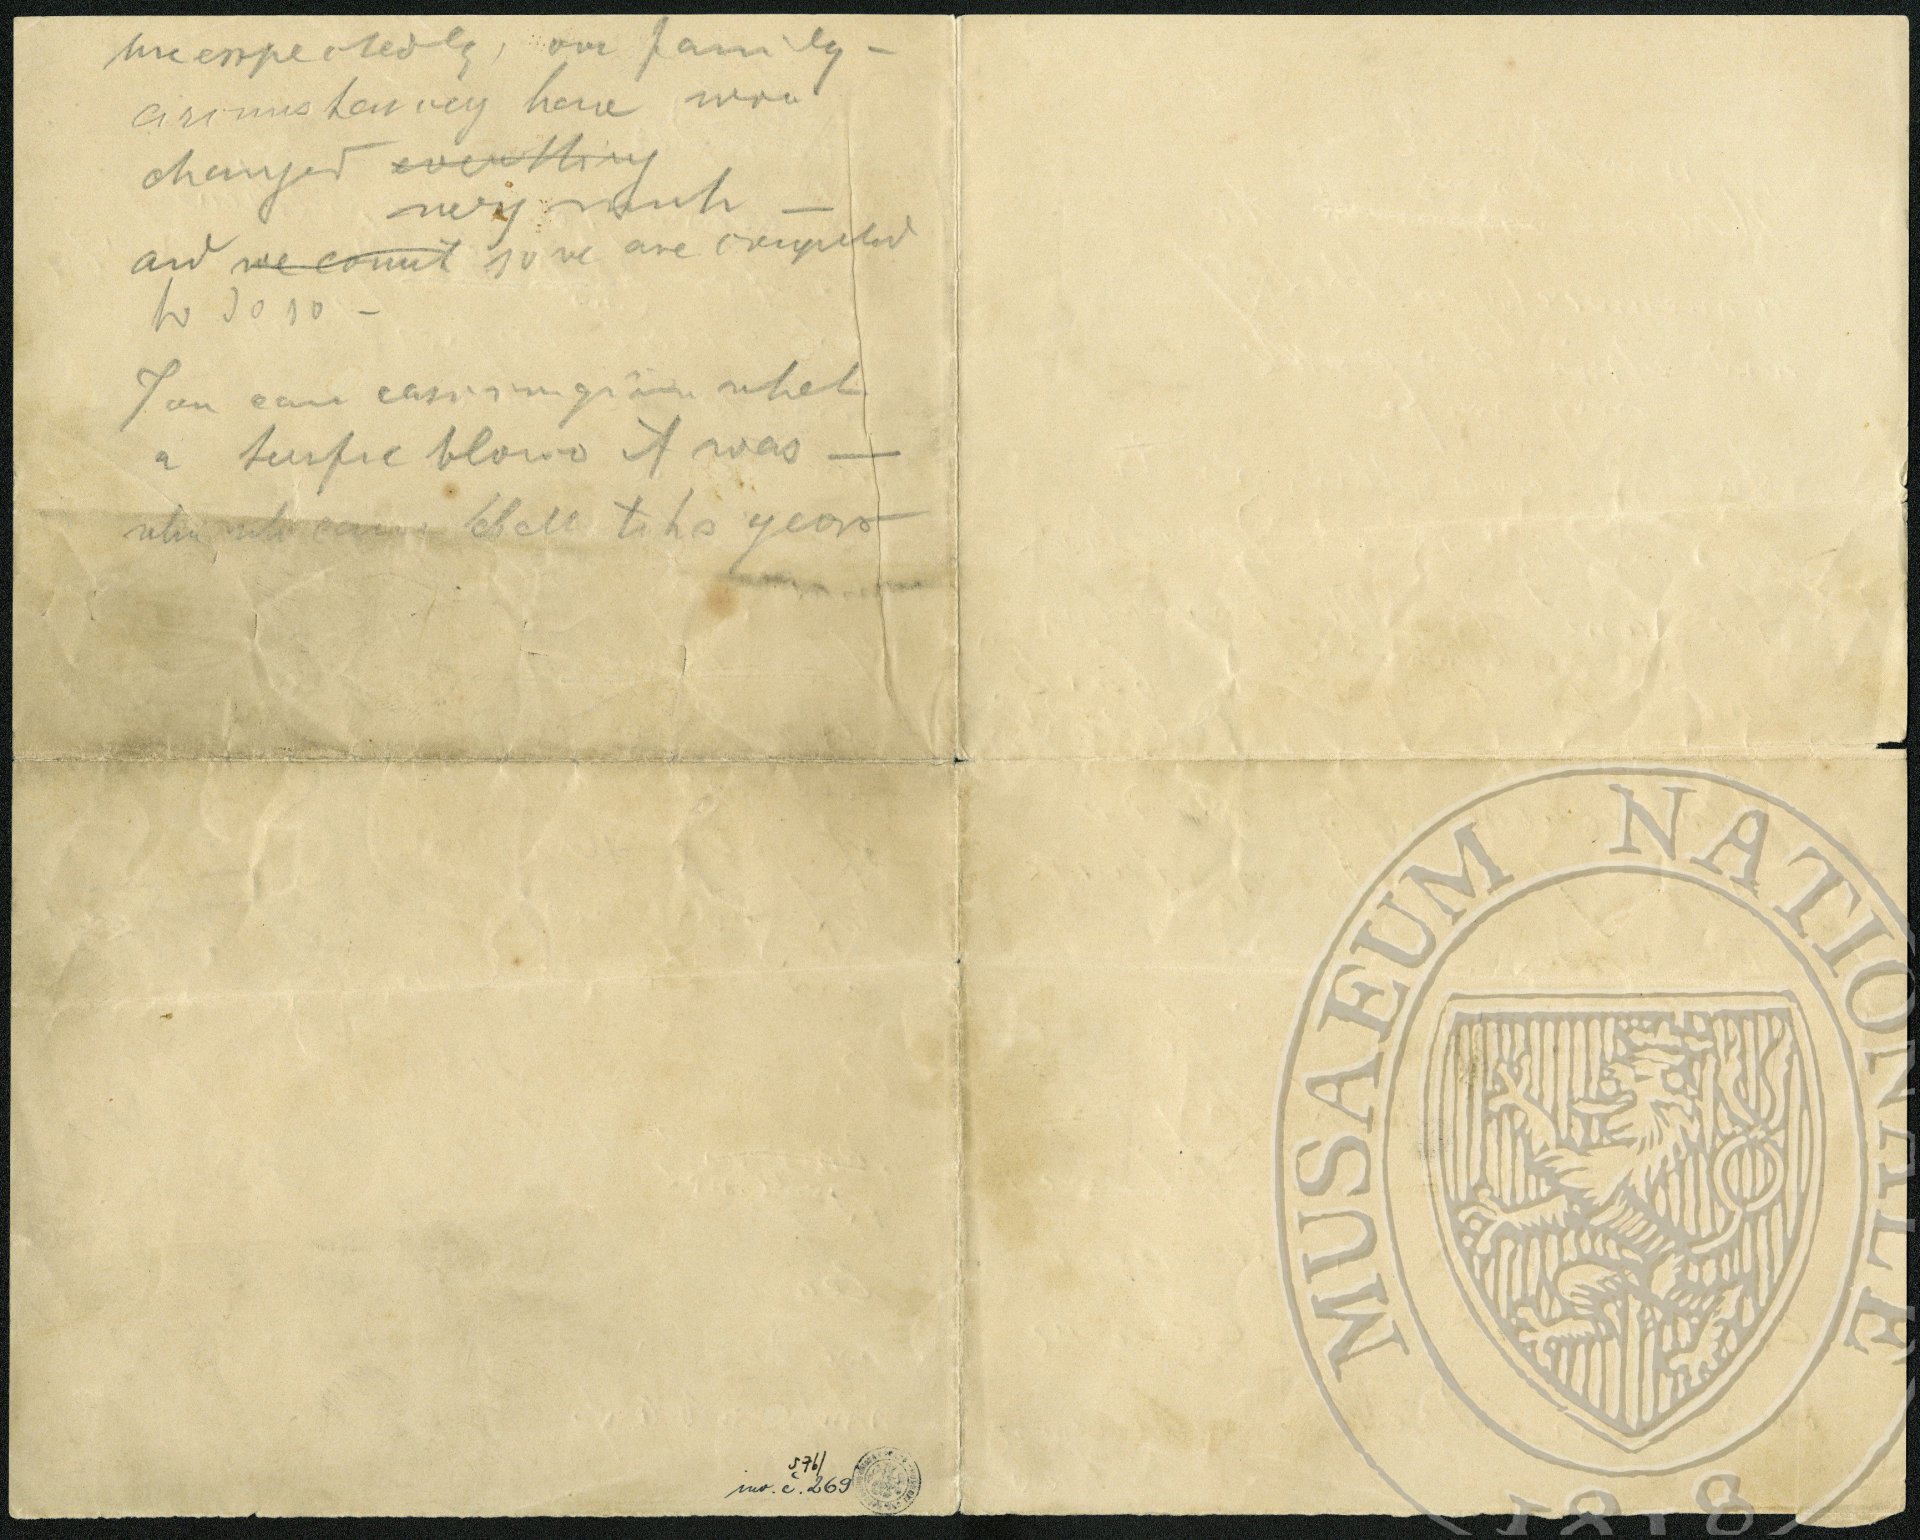 unexpectedly, our family –
circumstancey have now
changed everything
very much –
and we comit so we are compelled
to do so –
You can easi imagine what
a terific blowo it was –
years
576/
inv. č. 269
MUSAEUM NATIONALE
1818